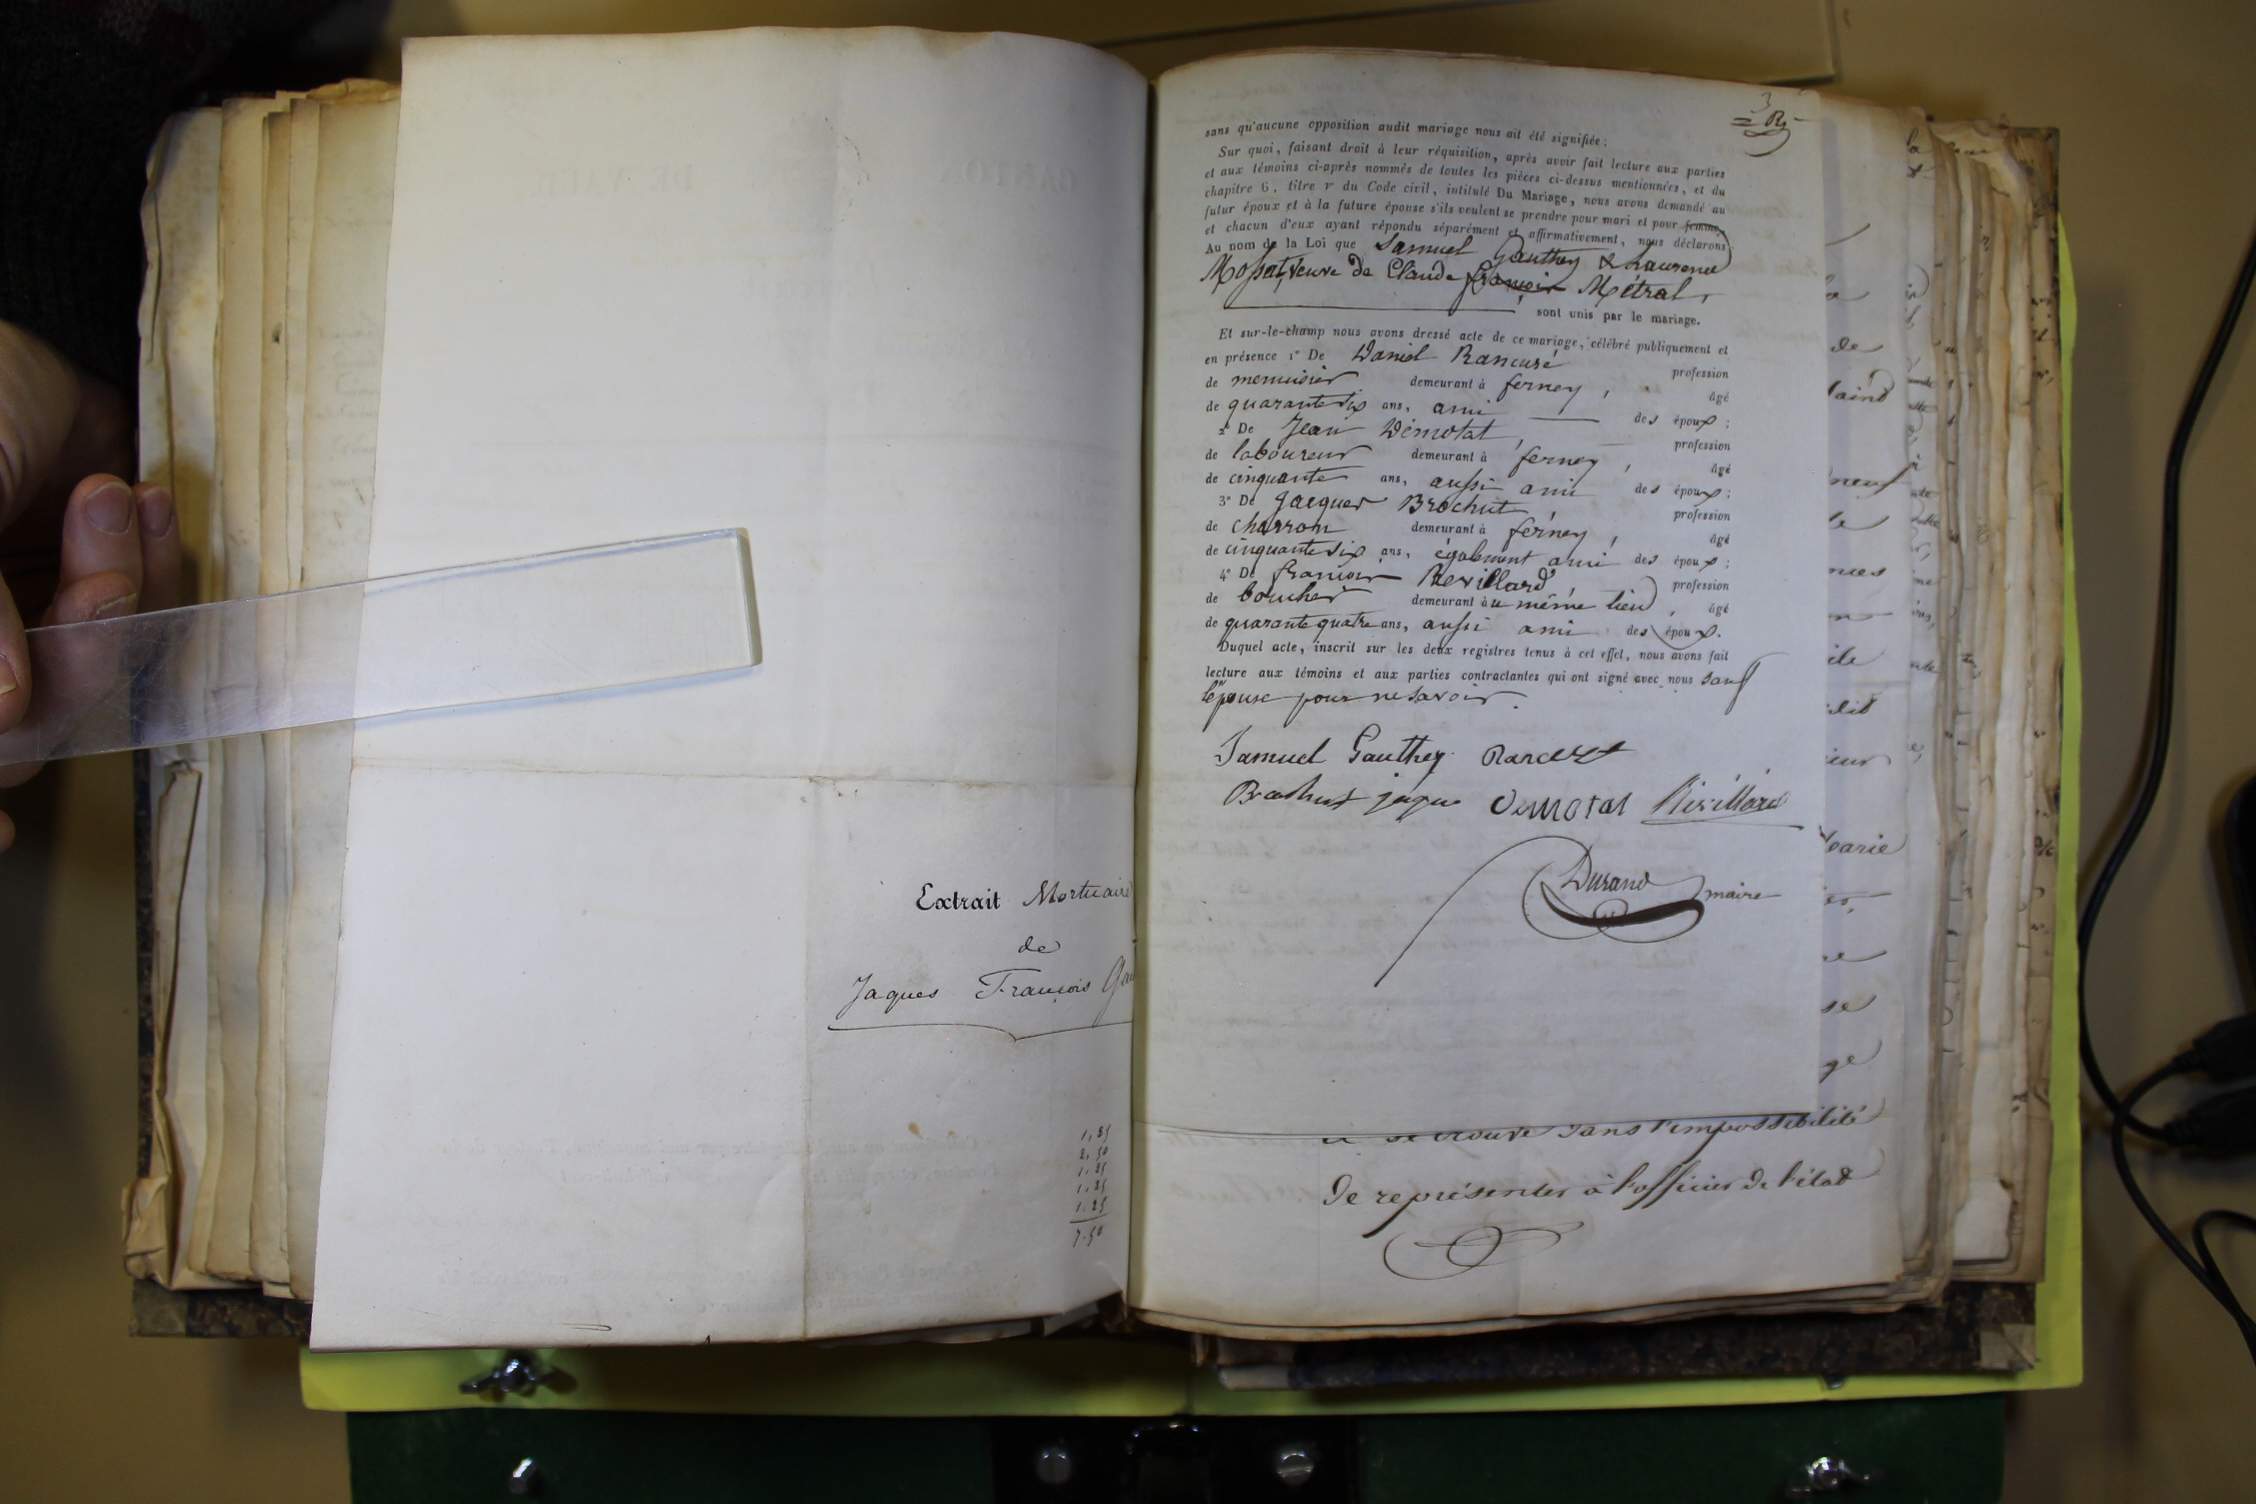 Extrait Mortuaire
de
Jaques François
1,25
2,50
1.25
1,25
1.25
7.50
3
sans qu'aucune opposition audit mariage nous ait été signifiée;
Sur quoi, faisant droit à leur réquisition, après avoir fait lecture aux parties
et aux témoins ci-après nommés de toutes les pièces ci-dessus mentionnées, et du
chapitre 6, titre v du Code civil, intitulé Du Mariage, nous avons demandé au
futur époux et à la future épouse s'ils veulent se prendre pour mari et pour femme;
et chacun d'eux ayant répondu séparément et affirmativement, nous déclarons
Au nom de la Loi que Samuel Gauthey & Laurence
Mossat, veuve de Claude françois Métral,
sont unis par le mariage.
Et sur-le-champ nous avons dressé acte de ce mariage, célébré publiquement et
en présence 1° De Daniel Rancuré profession
de menuisier demeurant à ferney, âgé
de quarante six ans, ami des époux;
2° De Jean Démotat, profession
de laboureur demeurant à ferney, âgé
de cinquante ans, aussi ami des époux;
3° De Jacques Brochut, profession
de charron demeurant à ferney, âgé
de cinquante six ans, également ami des époux;
4° De françois Revillard, profession
de boucher demeurant au même lieu, âgé
de quarante quatre ans, aussi ami des époux.
Duquel acte, inscrit sur les deux registres tenus à cet effet, nous avons fait
lecture aux témoins et aux parties contractantes qui ont signé avec nous sauf
l'épouse pour ne savoir.
Samuel Gauthey
Brochut jaque Demotat Révillard
Durand maire
se trouve dans l'impossibilité
de représenter à l'officier de l'état